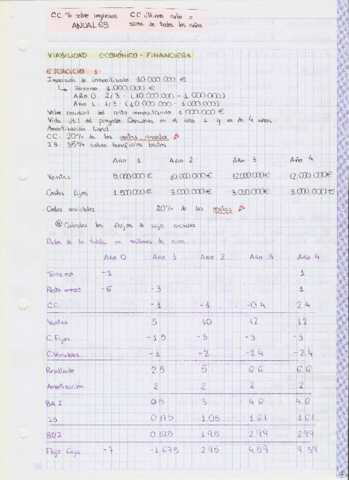 CC % sobre ingresos ANUALES
CC último año = suma de todos los años
VIABILIDAD ECONÓMICO - FINANCIERA
EJERCICIO 1
Inversión de inmovilizado 10.000.000 €
↳ Terreno 1.000.000 €
Año 0 2/3 · (10.000.000 - 1.000.000)
Año 1 1/3 · (10.000.000 - 1.000.000)
Valor residual del resto inmovilizado 1.000.000 €
Vida útil del proyecto. Comienza en el año 1 y es de 4 años
Amortización lineal
CC: 20% de las ventas
IS: 35% sobre beneficios brutos
Año 1 Año 2 Año 3 Año 4
Ventas 5.000.000 € 10.000.000 € 12.000.000 € 12.000.000 €
Costes fijos 1.500.000 € 3.000.000 € 3.000.000 € 3.000.000 €
Costes variables 20% de las ventas
Calcular los flujos de caja anuales
Datos de la tabla en millones de euros
Año 0 Año 1 Año 2 Año 3 Año 4
Terreno -1 1
Resto inmov -6 -3 1
CC -1 -1 -0.4 2.4
Ventas 5 10 12 12
C. Fijos -1.5 -3 -3 -3
C. Variables -1 -2 -2.4 -2.4
Resultado 2.5 5 6.6 6.6
Amortización 2 2 2 2
BAI 0.5 3 4.6 4.6
IS 0.175 1.05 1.61 1.61
BDI 0.325 1.95 2.99 2.99
Flujo Caja -7 -1.675 2.95 4.59 9.39